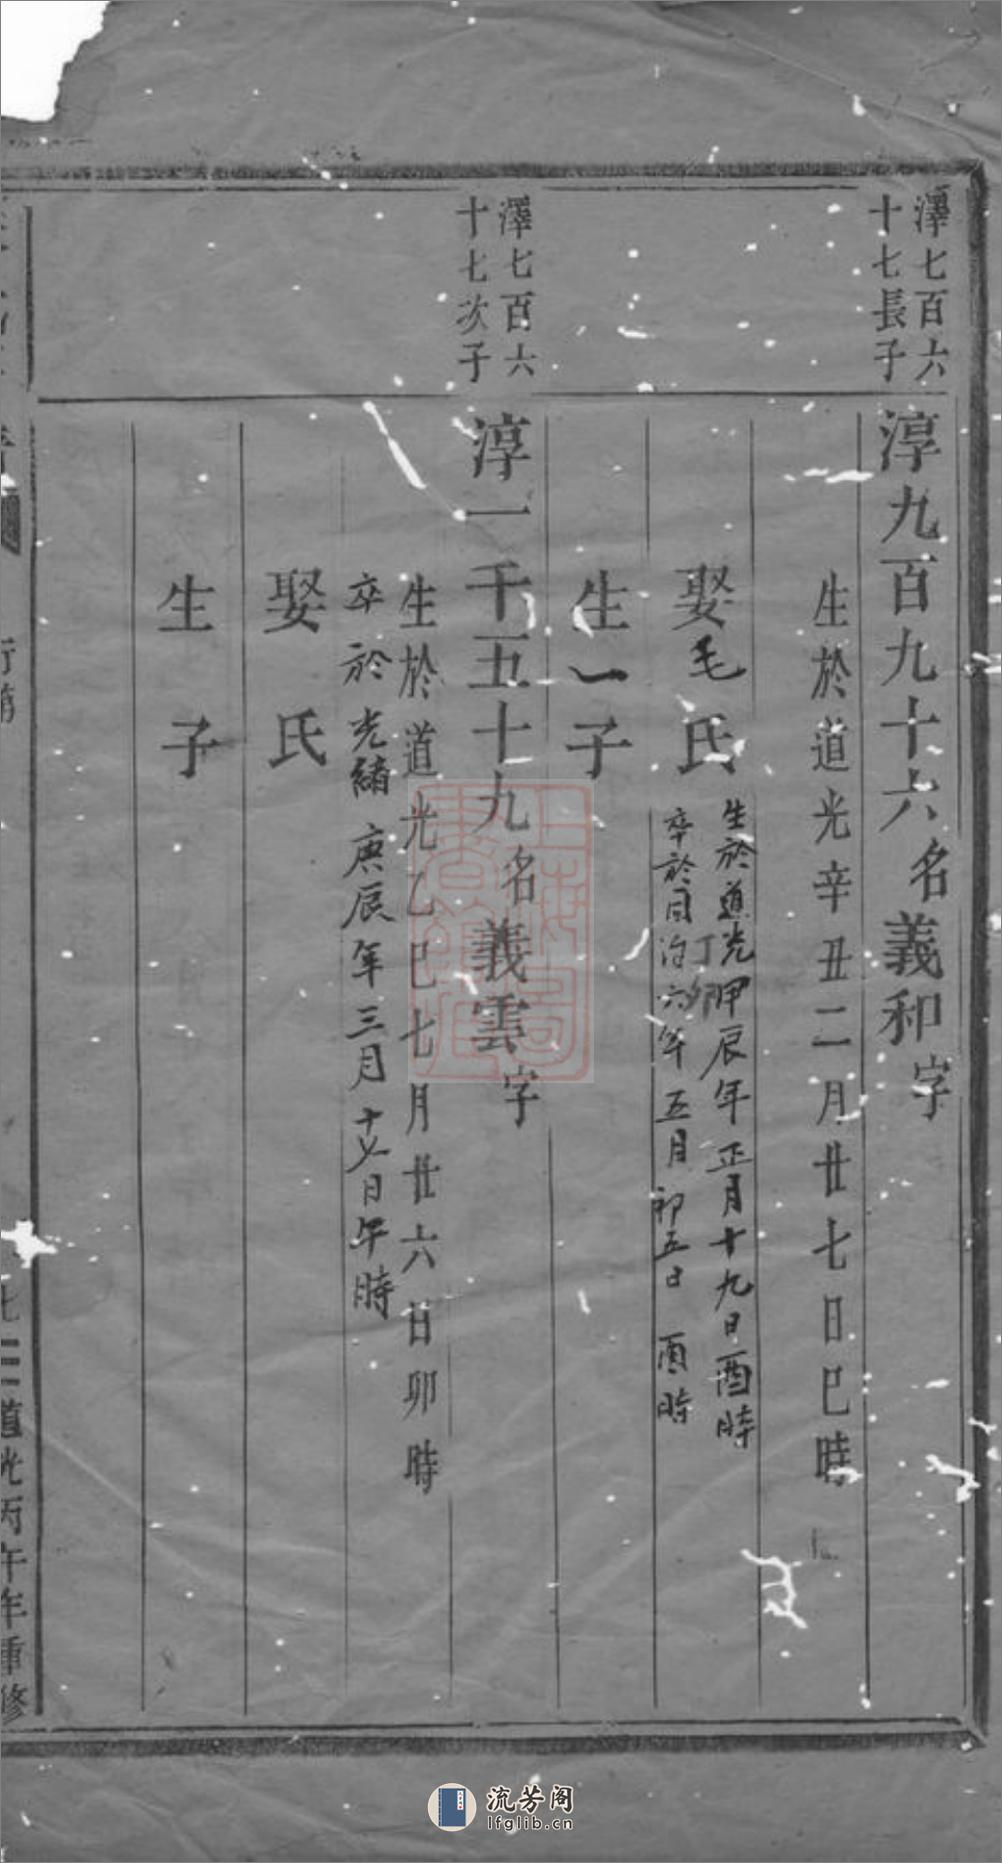 澤七百六
十七長子
淳九百九十六名義和字
生於道光辛丑二月廿七日巳時
娶毛氏
生於道光甲辰年正月十九日酉時
卒於同治六年丁卯五月初五日酉時
生一子
澤七百六
十七次子
淳一千五十九名義雲字
生於道光乙巳七月廿六日卯時
卒於光緒庚辰年三月十七日午時
娶氏
生子
道光丙午年重修
流芳阁
lfglib.cn